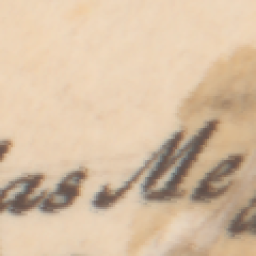 as Me